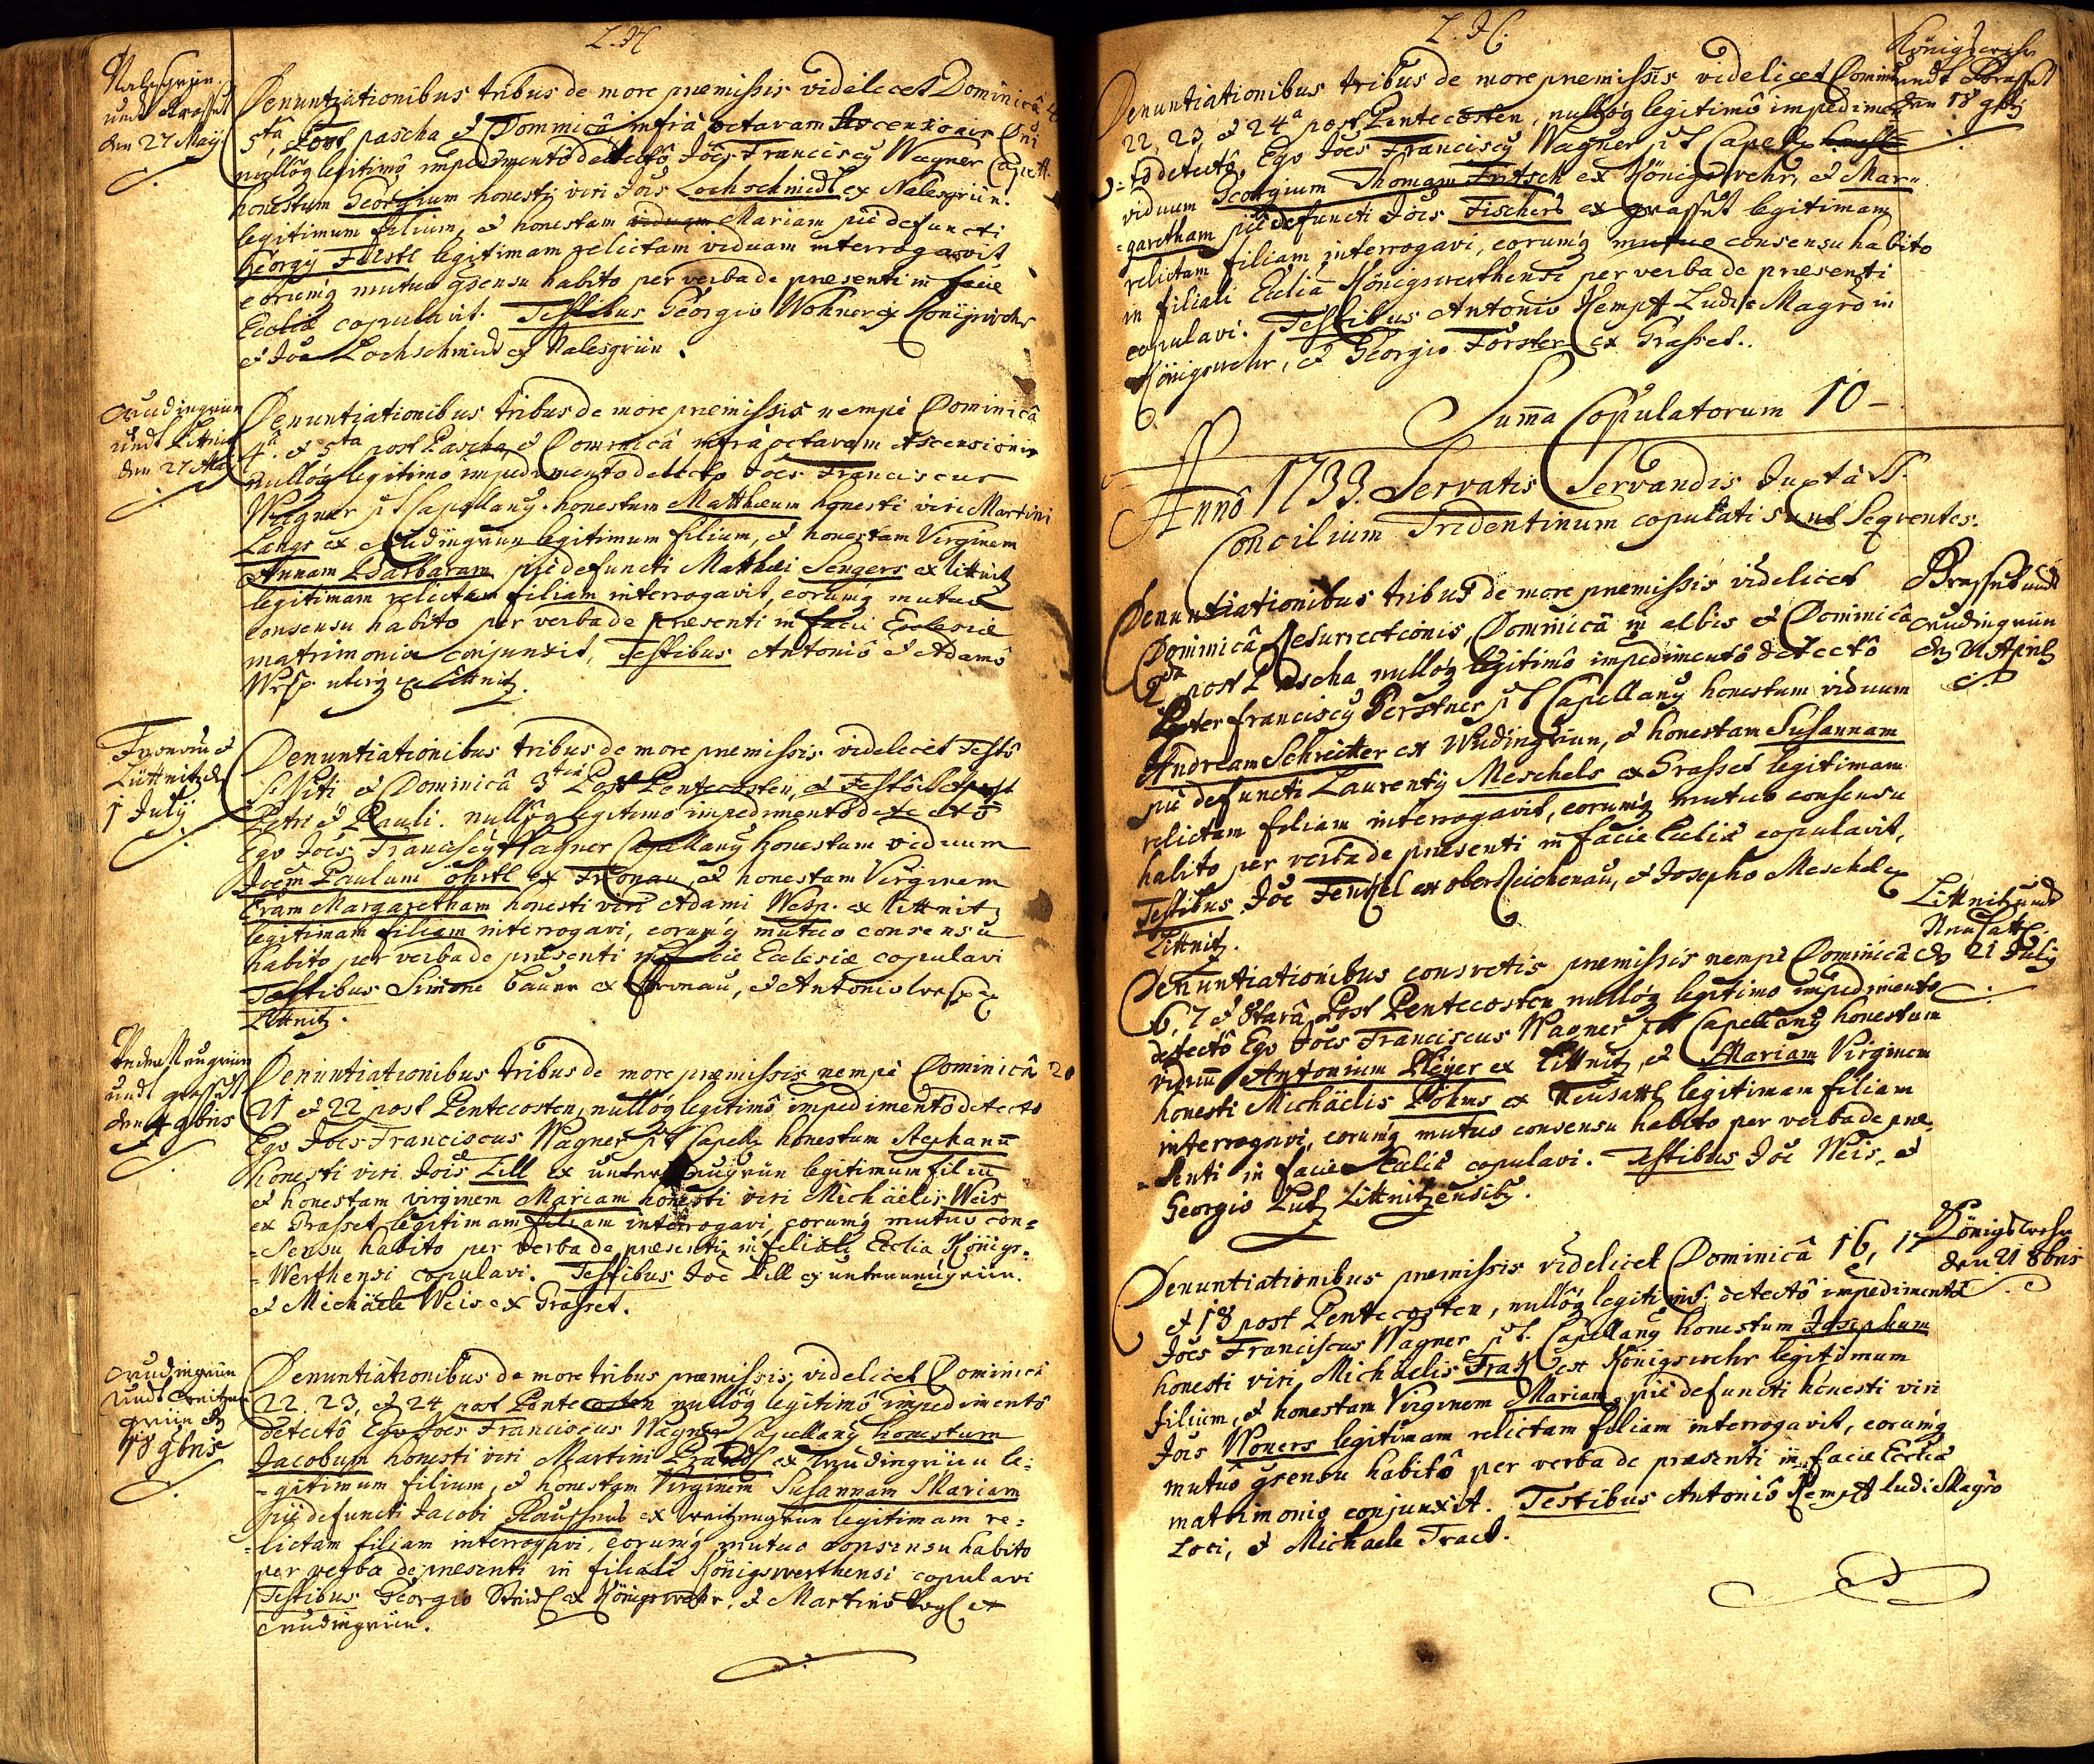 L. H.
Nalesgrün
undt Grasset
den 27 Maÿ
Denuntiationibus tribus de more præmissis videlicet Dominicâ 4.
5tâ, Post pascha et Dominicâ infrà octavam Ascensionis Dni
nullôq legitimô impedimentô detectô Joes Franciscq Wagner Capell.
honestum Georgium honestj viri Jois Lochschmidl ex Nalesgrün.
legitimum filium, et honestam viduam Mariam piè defuncti
Georgÿ Fürstl legitimam relictam viduam interrogavit
eorumq mutuo gsensu habito per verba de præsenti in facie
Eccliæ copulavit. Testibus Georgio Wohner ex Königswehr
et Joe Lochschmidt ex Nalesgrün.
Wudingrün
undt Littnitz
den 27 Maÿ
Denuntiationibus tribus de more præmissis nempè Dominicâ
4ta et 5ta post Pascha, et Dominicâ infrà octavam Ascensionis
nullôq legitimo impedimento detecto Joes Franciscus
Wagner p t Capellanq honestum Matthæum honesti viri Martini
Langs ex Wudingrün legitimum filium, et honestam Virginem
Annam Barbaram piè defuncti Matthæi Sengers ex Littnitz
legitimam relictam filiam interrogavit, eorumq mutuo
consensu habito per verba de præsenti in facie Ecclesiæ
matrimonio conjunxit, Testibus Antoniô et Adamô
Wesp. uterq ex Littnitz.
Fronau et
Littnitz den
1 July
Denuntiationibus tribus de more præmissis videlicet Festô
S. Viti et Dominicâ 3tia Post Pentecosten, et Festô
Petri et Pauli. nullôq legitimo impedimentô detectô
Ego Joes Franciscq Wagner Capellanq honestum viduum
Joem Paulum Öhrtl ex Fronau, et honestam Virginem
Evam Margaretham honesti viri Adami Wesp. ex Littnitz
legitimam filiam interrogavi, eorumq mutuo consensu
habito per verba de præsenti in facie Ecclesiæ copulavi
Testibus Simone Bauer ex Fronau, et Antonio Wesp ex
Littnitz.
undt Grasset
den 4 9bris
Denuntiationibus tribus de more præmissis nempè Dominicâ 20
21 et 22 post Pentecosten, nullôq legitimô impedimentô detecto
Ego Joes Franciscus Wagner p t Capell honestum Stephanū
honesti viri Jois Lill ex unter Neugrün legitimum filiū
et honestam virginem Mariam honesti viri Michäelis Weis
ex Grasset legitimam filiam interrogavi, eorumq mutuo con=
=sensu habito per verba de præsenti in filiali Ecclia Königs=
=werthensi copulavi. Testibus Joe Lill ex unterneugrün.
et Michäele Weis ex Grasset.
Wudingrün
undt Weitzen
grün den
18 9bris
Denuntiationibus de more tribus præmissis, videlicet Dominicâ
22. 23, et 24 post Pentecosten nullôq legitimô impedimentô
detectô Ego Joes Franciscus Wagner Capellanq honestum
Jacobum honesti viri Martini Brandl ex Wudingrün le=
=gitimum filium, et honestam Virginem Susannam Mariam
piè defuncti Jacobi ex Weitzengrün legitimam re=
=lictam filiam interrogavi, eorumq mutuo consensu habito
per verba de præsenti in filiali Königswerthensi copulavi
Testibus Georgio Steidl ex Königswehr, et Martino Vogl ex
Wudingrün.
L. H.
Königswehr
undt Grasset
den 18 9bris
Denuntiationibus tribus de more præmissis videlicet Dominicâ
22, 23, et 24a post Pentecosten, nullôq legitimô impedimen=
=to detectô Ego Joes Franciscq Wagner p t Capell honest
viduum Georgium Thomam Fritsch ex Königswehr, et Mar=
=garetham piè defuncti Jois Fischers ex Grasset legitimam
relictam filiam interrogavi, eorumq mutuo consensu habito
in filiali Ecclia Königswerthensi per verba de præsenti
copulavi. Testibus Antonio Kempff Ludi Magro in
Königswehr, et Georgio Förster ex Grasset.
Suma Copulatorum 10 –
Annô 1733. Servatis Servandis Juxtà S.
Concilium Tridentinum copulati sunt Seqventes.
Grasset undt
Wudingrün
den 21 Aprilis
Denuntiationibus tribus de more præmissis videlicet
Dominicâ Resurrectionis, Dominicâ in albis et Dominicâ
2da post Pascha nullôq legitimô impedimentô detectô
Pater Franciscq Gerstner p t Capellanq honestum viduum
Andream Schreitter ex Wudingrün, et honestam Susannam
piè defuncti Laurentÿ Meschels ex Grasset legitimam
relictam filiam interrogavit, eorumq mutuo consensu
habito per verba de præsenti in facie Eccliæ copulavit,
Testibus Joe Fentzel ex ober Reichenau, et Josepho Meschel ex
Littnitz.
Littnitz undt
Neusattl
den 21 July
Denuntiationibus consvetis præmissis nempè Dominicâ
6, 7 et 8tava Post Pentecosten nullôq legitimo impedimento
detectô Ego Joes Franciscus Wagner p t Capellanq honestum
viduū Antonium Pleÿer ex Littnitz, et Mariam Virginem
honesti Michäelis Böhms ex Neusattl legitimam filiam
interrogavi, eorumq mutuo consensu habito per verba de præ=
=senti in facie Eccliæ copulavi. Testibus Joe Weis, et
Georgio Lutz Littnitzensibq.
Königswehr
den 21 8bris
Denuntiationibus præmissis videlicet Dominicâ 16, 17
et 18 post Pentecosten, nullôq legitimô detectô impedimentô
Joes Franciscus Wagner p t. Capellanq honestum Josephum
honesti viri Michäelis Tract ex Königswehr legitimum
filium, et honestam Virginem Mariam, piè defuncti honesti viri
Jois Woners legitimam relictam filiam interrogavit, eorumq
mutuo gsensu habitô per verba de præsenti in facie Eccliæ
matrimonio conjunxit. Testibus Antoniô Kempff ludi Magro
Loci, et Michaele Tract.